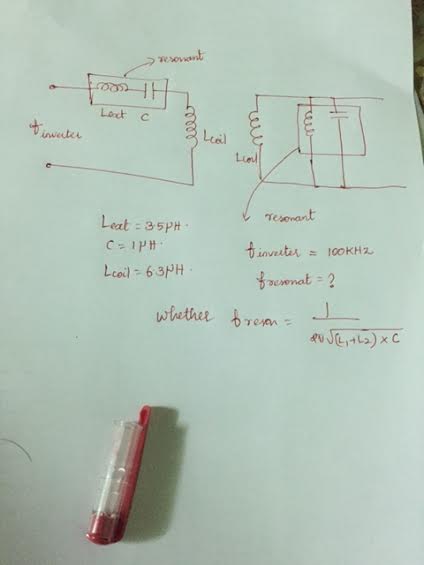 resonant
Lext C
finverter
Lcoil
Lcoil
resonant
Lext = 35µH.
C = 1µH.
Lcoil = 63µH.
finverter = 100KHZ
fresonat = ?
whether freson = 1
2π√(L1+L2) × C